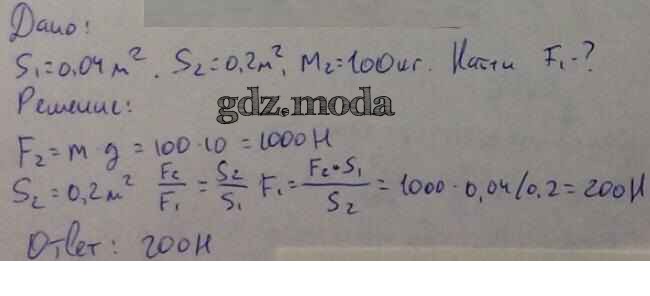 Дано:
S₁=0,04м². S₂=0,2м², M₂=100кг. Найти F₁-?
Решение:
gdz.moda
F₂=m·g=100·10=1000Н
S₂=0,2м² F₂/F₁=S₂/S₁ F₁=F₂·S₁/S₂=1000·0,04/0,2=200Н
Ответ: 200Н